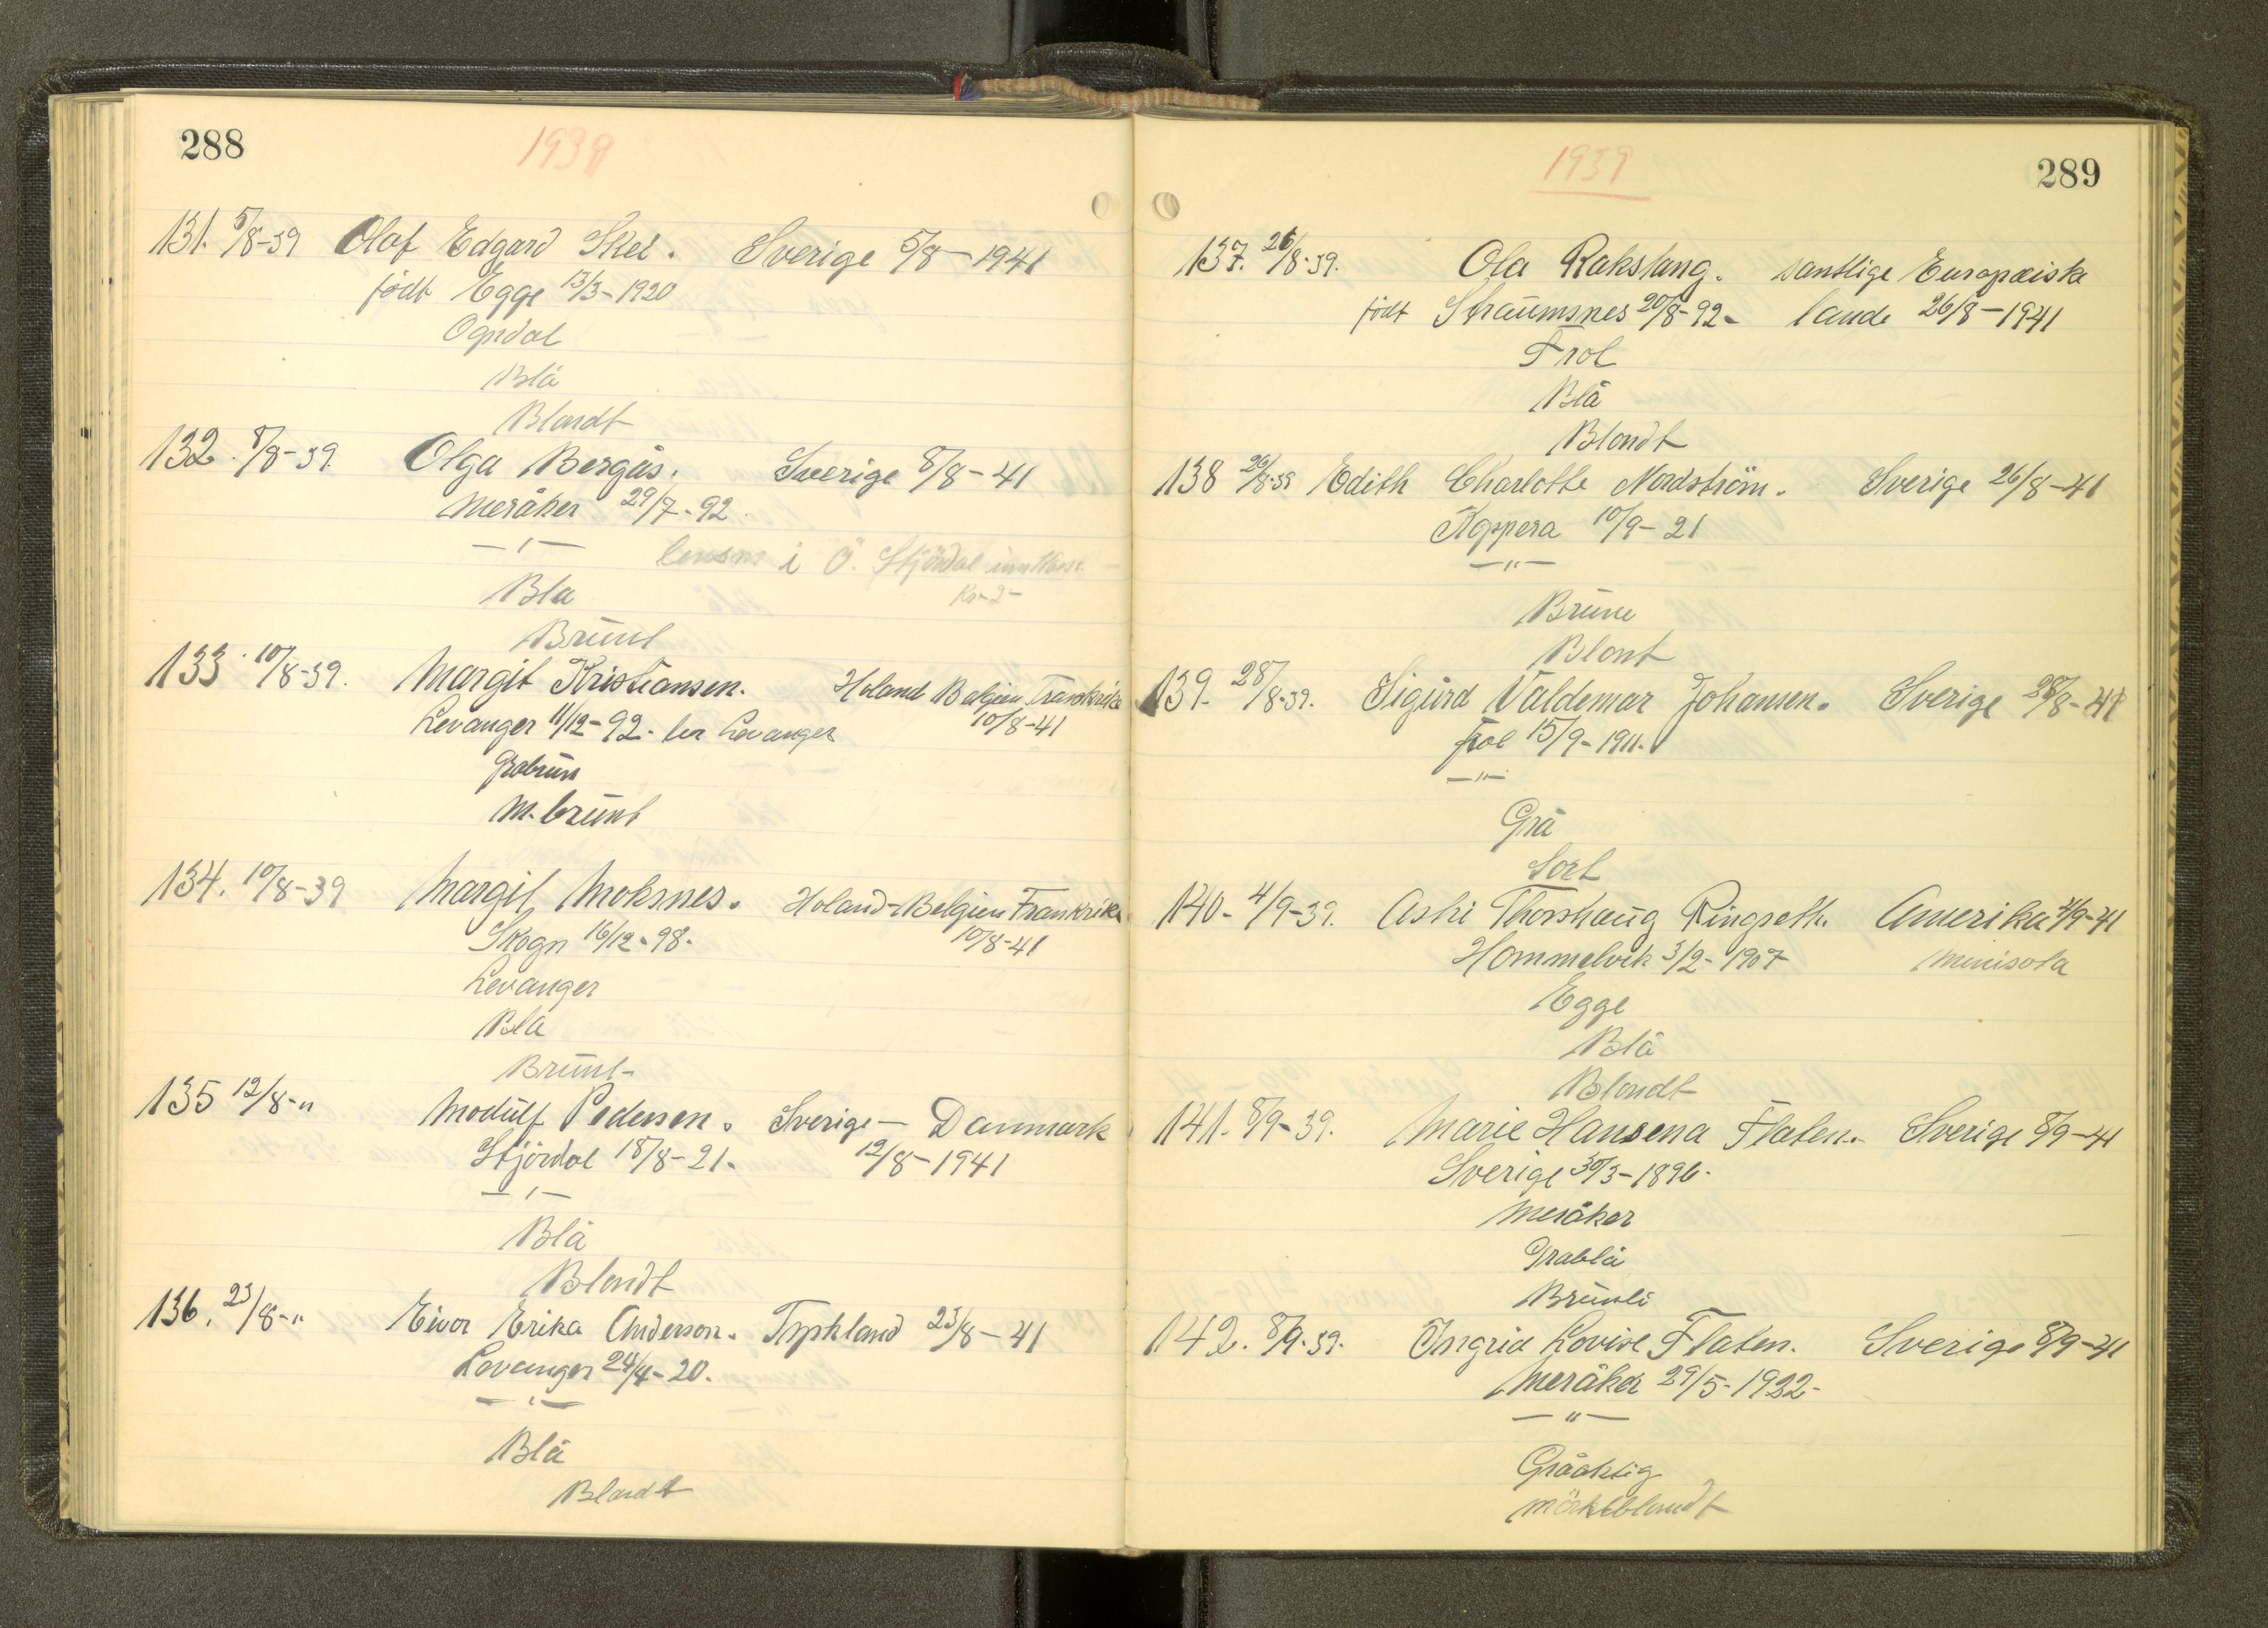 288
1939
131. 5/8-39 Olaf Edgard Skei. Sverige 5/8-1941
født Egge 13/3-1920
Ogndal
Blå
Blondt
132. 8/8-39. Olga Bergås. Sverige 8/8-41
Meråker 29/7-92.
—"—
lensm i Ö. Stjördal
kr 2-
Bla
Brunt
133 10/8-39. Margit Kristiansen. Holand Belgien Frankrike
Levanger 11/12-92. bor Levanger 10/8-41
Gråbrun
M. brunt
134. 10/8-39 Margit Moksnes. Holand-Belgien Frankrike
Skogn 16/12-98. 10/8-41
Levanger
Blå
Brunt-
135 12/8-" Modulf Pedersen. Sverige — Danmark
Stjördal 18/8-21. 12/8-1941
—"—
Blå
Blondt
136. 23/8-" Eivor Erika Anderson. Tyskland 23/8-41
Levanger 24/4-20.
—"—
Blå
Blondt
289
1939
137. 26/8-39. Ola Rakstang. samtlige Europæiske
født Straumsnes 20/8-92- lande 26/8-1941
Frol
Blå
Blondt
138 26/8-39 Edith Charlotte Nordström. Sverige 26/8-41
Kopperå 10/9-21
—"—
Brune
Blont
139. 28/8-39. Sigurd Valdemar Johansen. Sverige 28/8-41
Frol 15/9-1911.
—"—
Grå
Sort
140- 4/9-39. Thorshaug Ringseth. Amerika 4/9-41
Hommelvik 3/2-1907 Minisota
Egge
Blå
Blondt
141. 8/9-39. Marie Hansena Flaten. Sverige 8/9-41
Sverige 30/3-1896.
Meråker
Gråblå
Brunli
142. 8/9-39. Ingrid Lovise Flaten. Sverige 8/9-41
Meråker 29/5-1922-
—"—
Gråaktig
mörktblondt